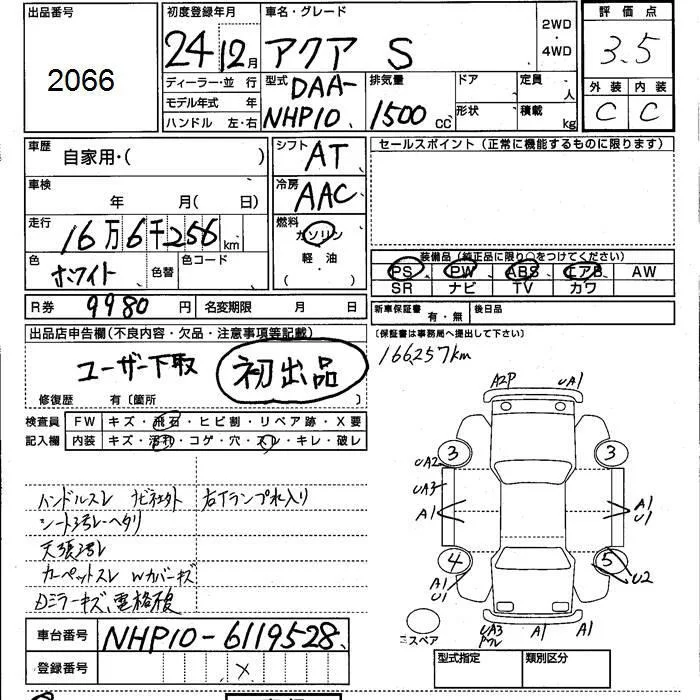 出品番号
2066
初度登録年月
24 12月
車名・グレード
アクア S
2WD
・
4WD
評価点
3.5
外装 内装
C C
ディーラー・並 行
モデル年式 年
ハンドル 左・右
型式 DAA-
NHP10
排気量
1500 CC
ドア
形状
定員 人
積載 kg
車歴
自家用・( )
車検
年 月( 日)
走行
16万6千256 km
色
ホワイト
色替
色コード
シフト
AT
冷房
AAC
燃料
ガソリン
軽・油
( )
セールスポイント(正常に機能するものに限ります)
装備品(純正品に限り○をつけてください)
PS PW ABS エアB AW
SR ナビ TV カワ
R券 9980 円
名変期限 月 日
新車保証書
有・無
後日品
(保証書は事務局へ提出して下さい)
出品店申告欄(不良内容・欠品・注意事項等記載)
ユーザー下取 初出品
修復歴 有〔箇所 〕
166257km
検査員 FW キズ・飛石・ヒビ割・リペア跡・X要
記入欄 内装 キズ・汚れ・コゲ・穴・スレ・キレ・破レ
ハンドルスレ
シート汚レ・ヘタリ
天張汚レ
カーペットスレ Wカバーキズ
Dミラーキズ
A2P UA1
3 3
UA2
UA3
A1
A1
U1
4 5
A1
U1
U2
ミスペア
UA3
A1 A1
車台番号 NHP10-6119528
登録番号 X
型式指定 類別区分